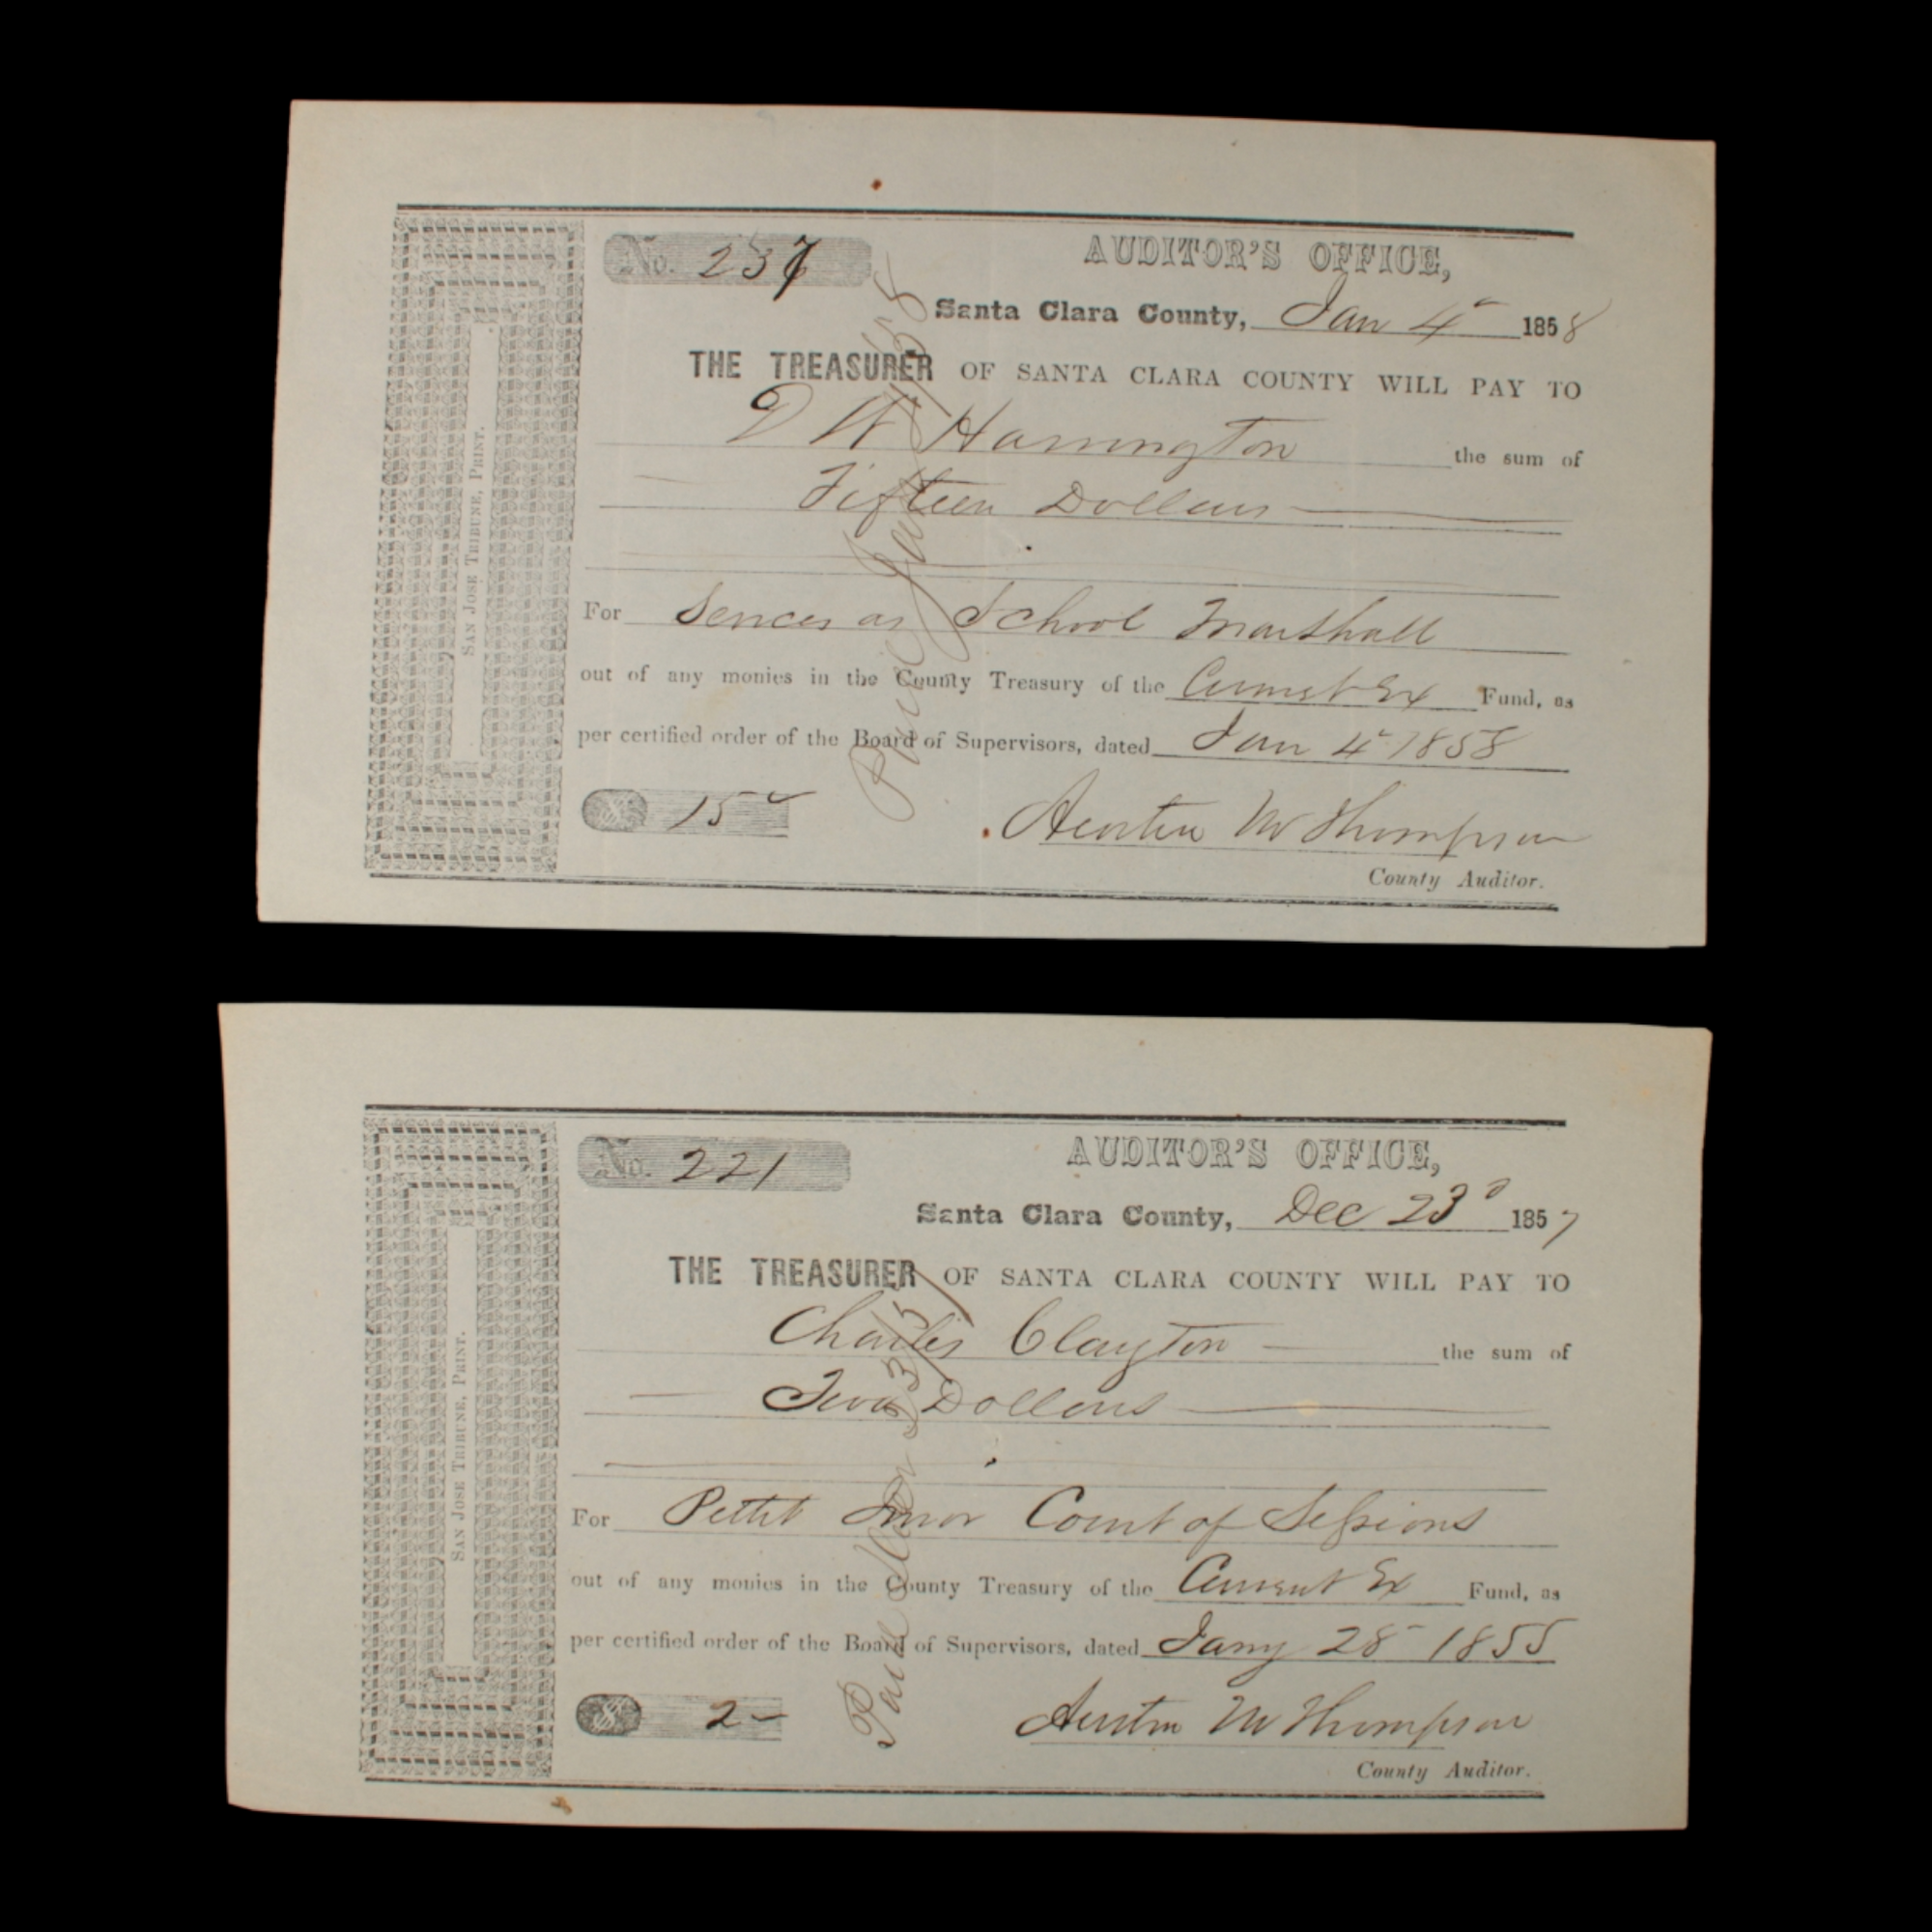 No. 237
AUDITOR'S OFFICE,
Santa Clara County, Jan 4" 1858
THE TREASURER OF SANTA CLARA COUNTY WILL PAY TO
D W Harrington the sum of
Fifteen Dollars
For Services as School Marshall
out of any monies in the County Treasury of the Current Ex Fund, as
per certified order of the Board of Supervisors, dated Jan 4" 1858
$ 15
Austin M Thompson
County Auditor.
SAN JOSE TRIBUNE, PRINT.
Paid Jan 4/58
No. 221
AUDITOR'S OFFICE,
Santa Clara County, Dec 23d 1857
THE TREASURER OF SANTA CLARA COUNTY WILL PAY TO
Charles Clayton the sum of
Two Dollars
For Pettit Juror Court of Sessions
out of any monies in the County Treasury of the Current Ex Fund, as
per certified order of the Board of Supervisors, dated Jany 28" 1855
$ 2
Austin M Thompson
County Auditor.
SAN JOSE TRIBUNE, PRINT.
Paid Dec 23/57